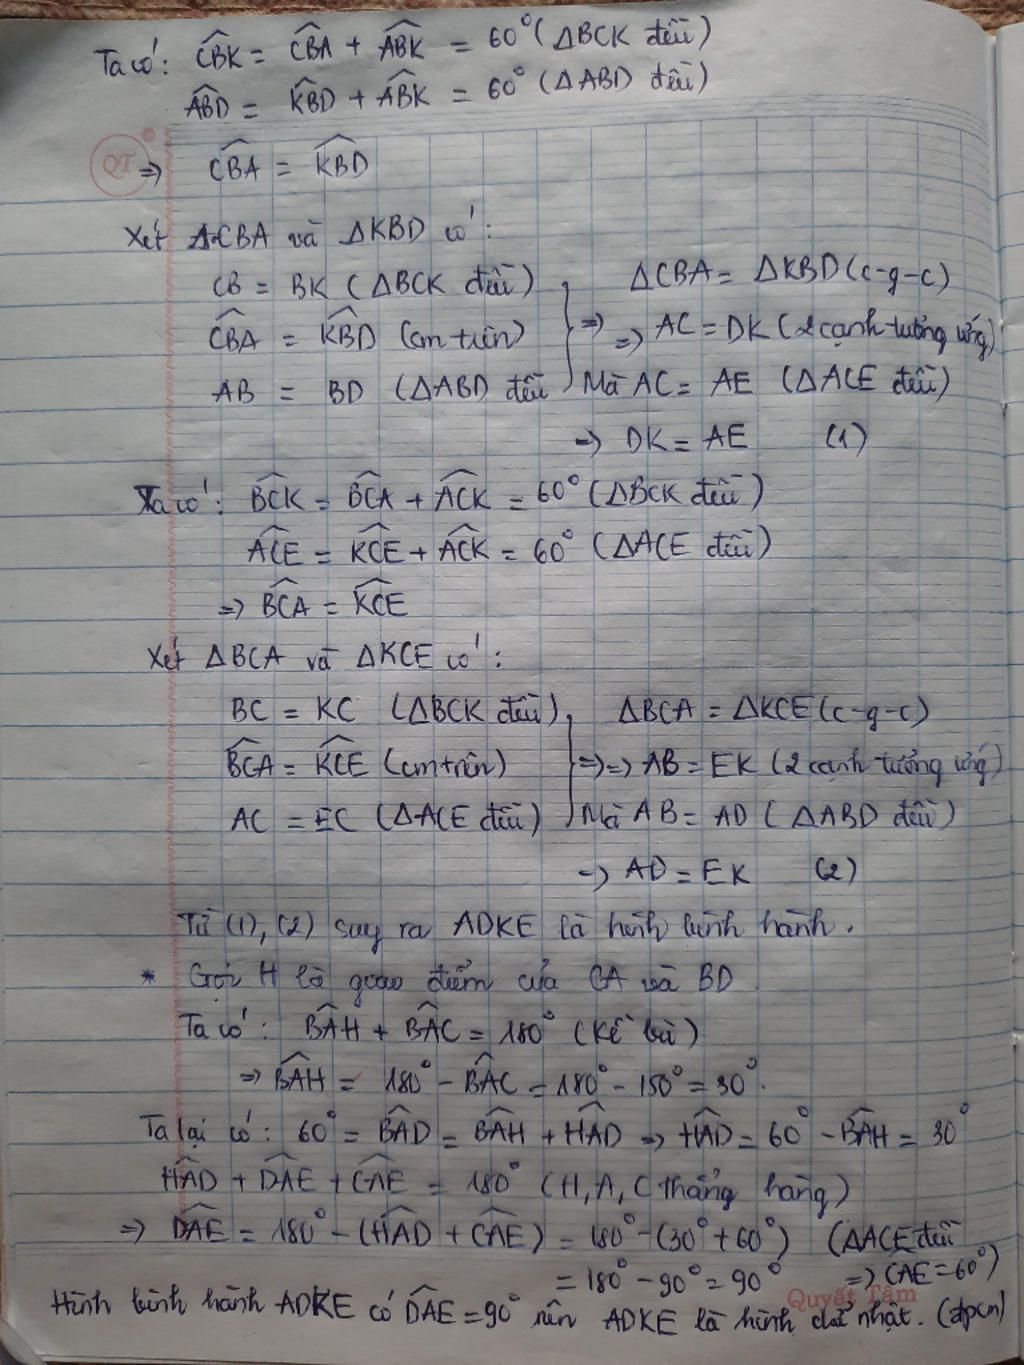 Ta có: CBK = CBA + ABK = 60° (ΔBCK đều)
ABD = KBD + ABK = 60° (ΔABD đều)
QT
=> CBA = KBD
Xét ΔCBA và ΔKBD có:
CB = BK (ΔBCK đều) ΔCBA = ΔKBD (c-g-c)
CBA = KBD (cm trên) => => AC = DK (2 cạnh tưởng ứng)
AB = BD (ΔABD đều Mà AC = AE (ΔACE đều)
=> DK = AE (1)
Ta có: BCK = BCA + ACK = 60° (ΔBCK đều)
ACE = KCE + ACK = 60° (ΔACE đều)
=> BCA = KCE
Xét ΔBCA và ΔKCE có:
BC = KC (ΔBCK đều), ΔBCA = ΔKCE (c-g-c)
BCA = KCE (cm trên) => => AB = EK (2 cạnh tưởng ứng)
AC = EC (ΔACE đều) Mà AB = AD (ΔABD đều)
=> AD = EK (2)
Từ (1), (2) suy ra ADKE là hình bình hành.
* Gọi H là giao điểm của CA và BD
Ta có: BAH + BAC = 180° (kề bù)
=> BAH = 180° - BAC = 180° - 150° = 30°.
Ta lại có: 60° = BAD = BAH + HAD => HAD = 60° - BAH = 30°
HAD + DAE + CAE = 180° (H, A, C thẳng hàng)
=> DAE = 180° - (HAD + CAE) = 180° - (30° + 60°) (ΔACE đều
= 180° - 90° = 90° => CAE = 60°)
Quyết Tâm
Hình bình hành ADKE có DAE = 90° nên ADKE là hình chữ nhật. (đpcm)